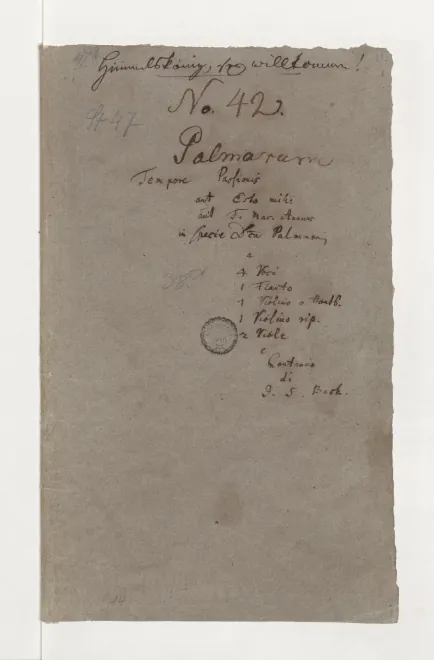 Himmelskönig, sey willkommen!
No. 42.
St 47
Palmarum
Tempore Passionis
aut Esto mihi
aut F. Mar.
in specie Palmarum
a
4 Voci
1 Flauto
1 Violino o Hautb.
1 Violino rip.
2 Viole
e
Continuo
di
J. S. Bach.
14